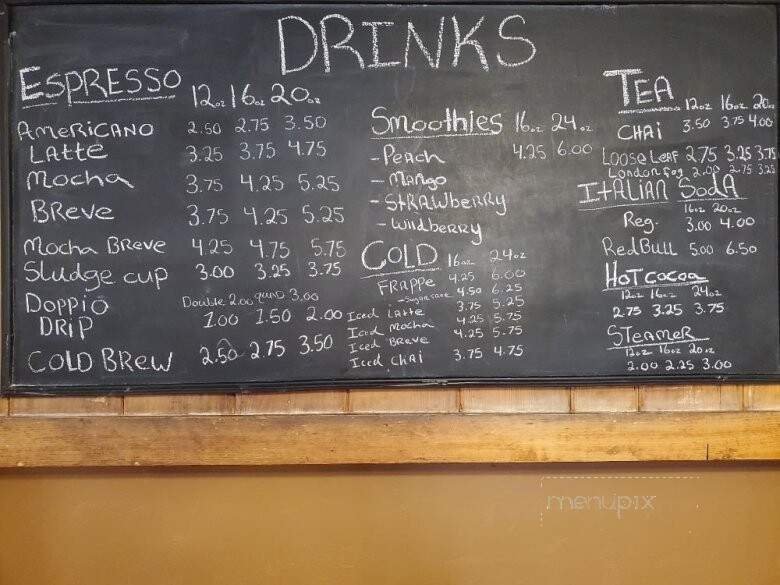 DRINKS
ESPRESSO 12oz 16oz 20oz
AMERICANO 2.50 2.75 3.50
LATTE 3.25 3.75 4.75
MOCHA 3.75 4.25 5.25
BREVE 3.75 4.25 5.25
MOCHA BREVE 4.25 4.75 5.75
SLUDGE CUP 3.00 3.25 3.75
DOPPIO Double 2.00 quad 3.00
DRIP 1.00 1.50 2.00
COLD BREW 2.50 2.75 3.50
Smoothies 16oz 24oz
- Peach 4.25 6.00
- Mango
- Strawberry
- Wildberry
COLD 16oz 24oz
FRAPPE 4.25 6.00
- Sugar free 4.50 6.25
Iced Latte 3.75 5.25
Iced Mocha 4.25 5.75
Iced Breve 4.25 5.75
Iced Chai 3.75 4.75
TEA 12oz 16oz 20oz
CHAI 3.50 3.75 4.00
Loose Leaf 2.75 3.25 3.75
London Fog 2.00 2.75 3.25
ITALIAN SODA
16oz 20oz
Reg. 3.00 4.00
Red Bull 5.00 6.50
HOT COCOA
12oz 16oz 24oz
2.75 3.25 3.75
STEAMER
12oz 16oz 20oz
2.00 2.25 3.00
menupix